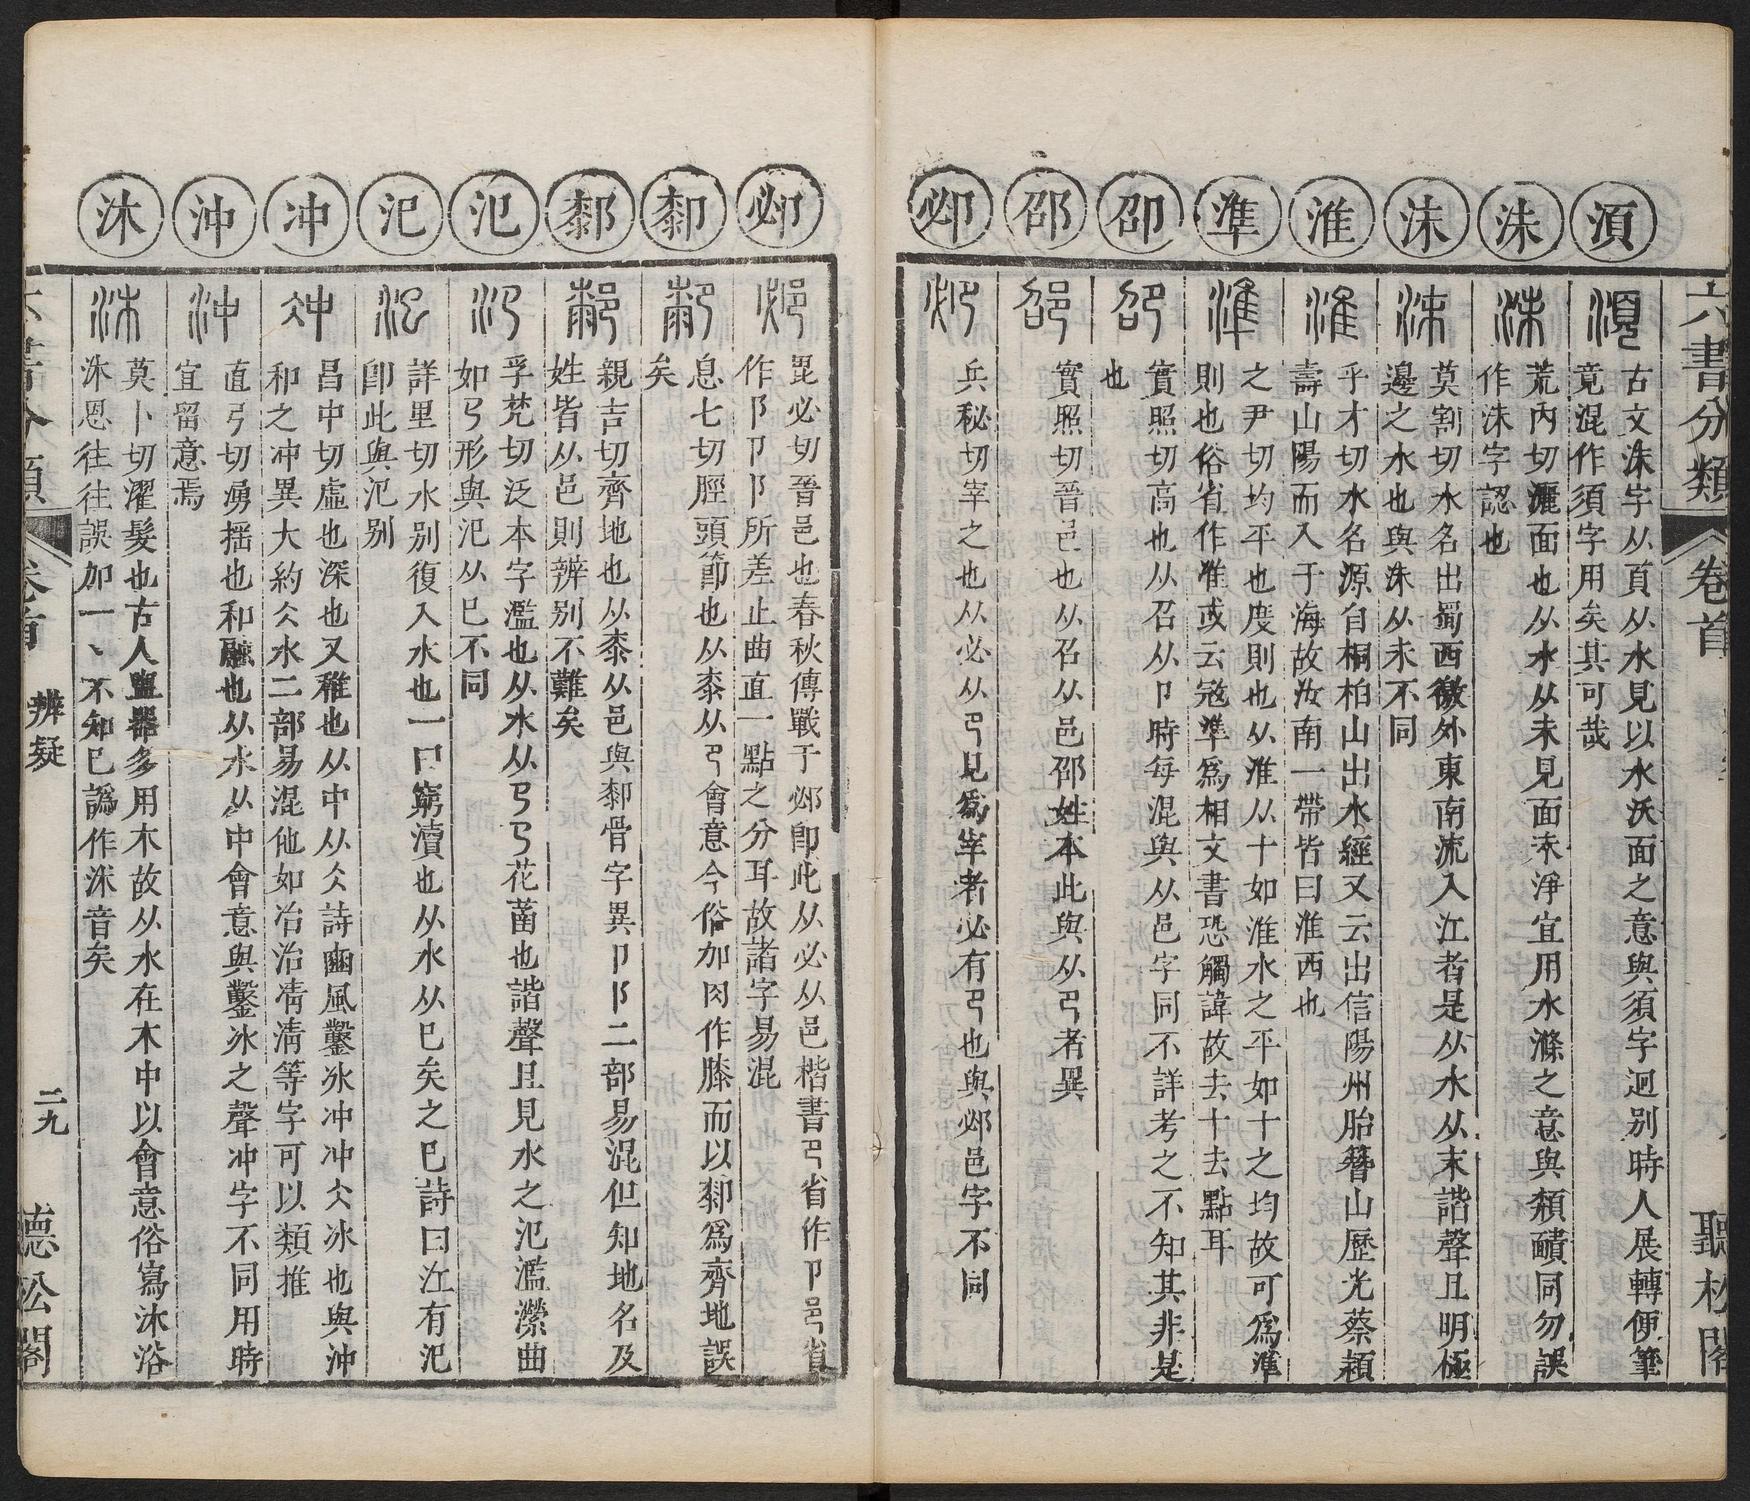 六書分類
卷首
聽松閣
湏
古文沬字从頁从水見以水沃面之意與須字迥别時人展轉便筆
竟混作須字用矣其可哉
沬
荒内切灑面也从水从未見面未淨宜用水滌之意與類靧同勿誤
作洙字認也
沫
莫割切水名出蜀西徼外東南流入江者是从水从末諧聲且明極
邊之水也與洙从未不同
淮
乎才切水名源自桐柏山出水經又云出信陽州胎簪山歷光蔡潁
壽山陽而入于海故汝南一帶皆曰淮西也
準
之尹切均平也度則也从淮从十如淮水之平如十之均故可爲準
則也俗省作准或云冦準爲相文書恐觸諱故去十去點耳
卲
實照切高也从召从卩時每混與从邑字同不詳考之不知其非是
也
邵
實照切晉邑也从召从邑邵姓本此與从卪者異
兵秘切宰之也从必从卪見爲宰者必有卪也與邲邑字不同
邲
毘必切晉邑也春秋傳戰于邲卽此从必从邑楷書卪省作卩邑省
作阝卩阝所差止曲直一點之分耳故諸字易混
厀
息七切脛頭節也从桼从卪會意今俗加肉作膝而以厀爲齊地誤
矣
䣛
親吉切齊地也从桼从邑與厀骨字異卩阝二部易混但知地名及
姓皆从邑則辨别不難矣
氾
孚梵切泛本字濫也从水从㔾㔾花菡也諧聲且見水之氾濫瀠曲
如㔾形與汜从巳不同
汜
詳里切水别復入水也一曰窮瀆也从水从巳矣之巳詩曰江有汜
卽此與氾别
冲
昌中切虛也深也又稚也从中从仌詩豳風鑿冰冲冲仌冰也與沖
和之冲異大約仌水二部易混他如冶治凊清等字可以類推
沖
直弓切湧揺也和融也从水从中會意與鑿冰之聲冲字不同用時
宜留意焉
沐
莫卜切濯髮也古人盥器多用木故从水在木中以會意俗寫沐浴
洙恩往往誤加一丶不知已譌作洙音矣
六書分類
卷首
辨疑
二九
聽松閣